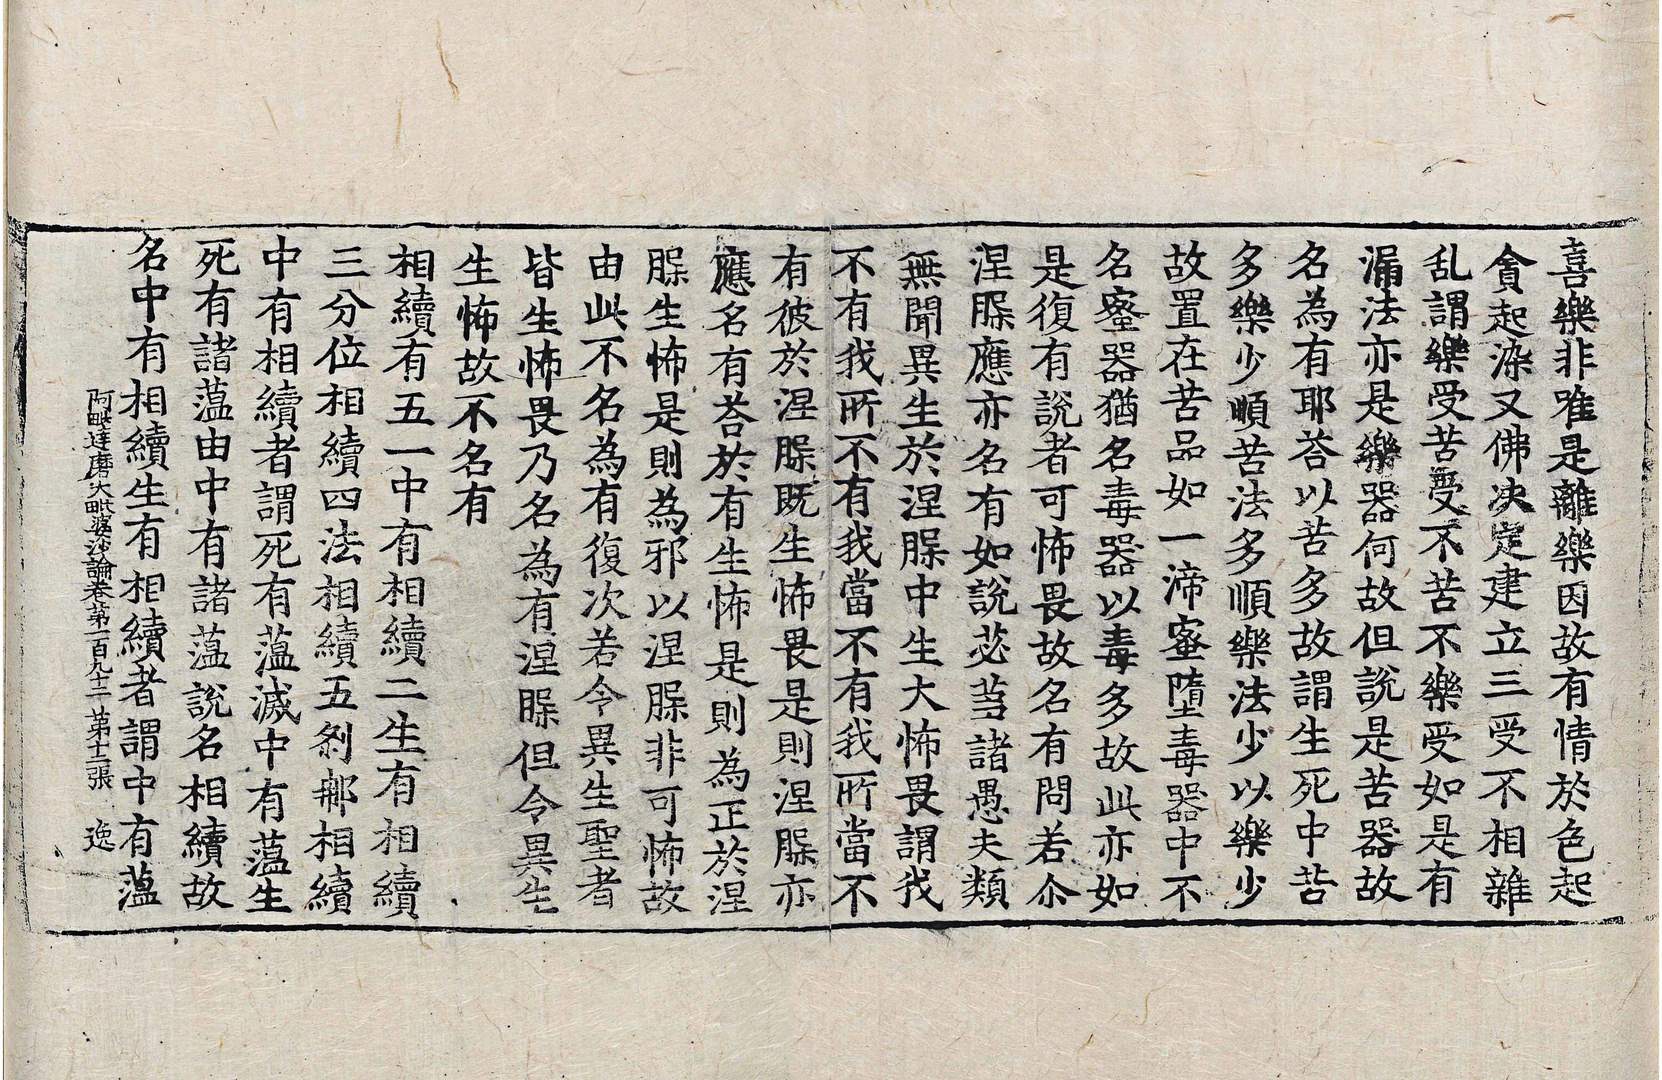 喜樂非唯是離樂因故有情於色起
貪起染又佛决定建立三受不相雜
乱謂樂受苦受不苦不樂受如是有
漏法亦是樂器何故但說是苦器故
名為有耶荅以苦多故謂生死中苦
多樂少順苦法多順樂法少以樂少
故置在苦品如一渧蜜墮毒器中不
名蜜器猶名毒器以毒多故此亦如
是復有說者可怖畏故名有問若尒
涅槃應亦名有如說苾芻諸愚夫類
無聞異生於涅槃中生大怖畏謂我
不有我所不有我當不有我所當不
有彼於涅槃既生怖畏是則涅槃亦
應名有荅於有生怖是則為正於涅
槃生怖是則為邪以涅槃非可怖故
由此不名為有復次若令異生聖者
皆生怖畏乃名為有涅槃但令異生
生怖故不名有
相續有五一中有相續二生有相續
三分位相續四法相續五剎那相續
中有相續者謂死有蕰滅中有蕰生
死有諸蕰由中有諸蕰說名相續故
名中有相續生有相續者謂中有蕰
阿毗達磨大毗婆沙論卷第一百九十二 第十二張 逸